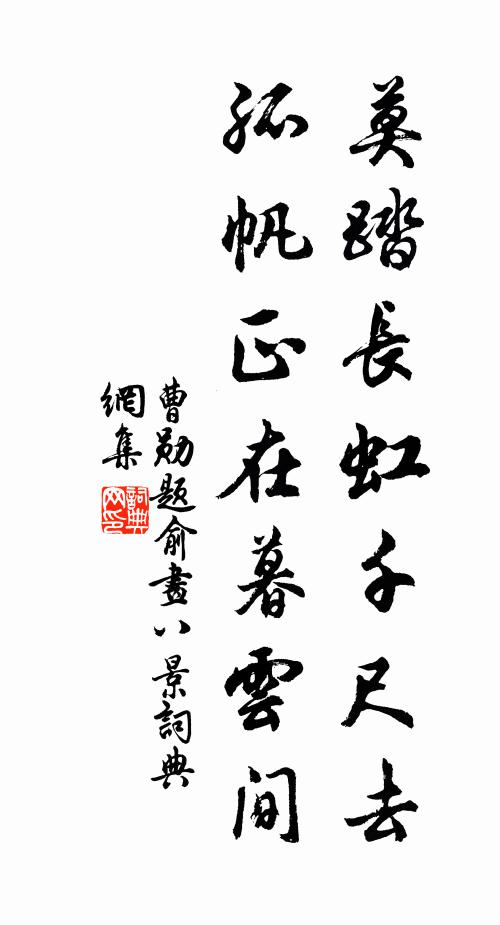 莫踏長虹千尺去
孤帆正在暮雲間
曹勛題俞畫八景詞典
網集
詞典
网印